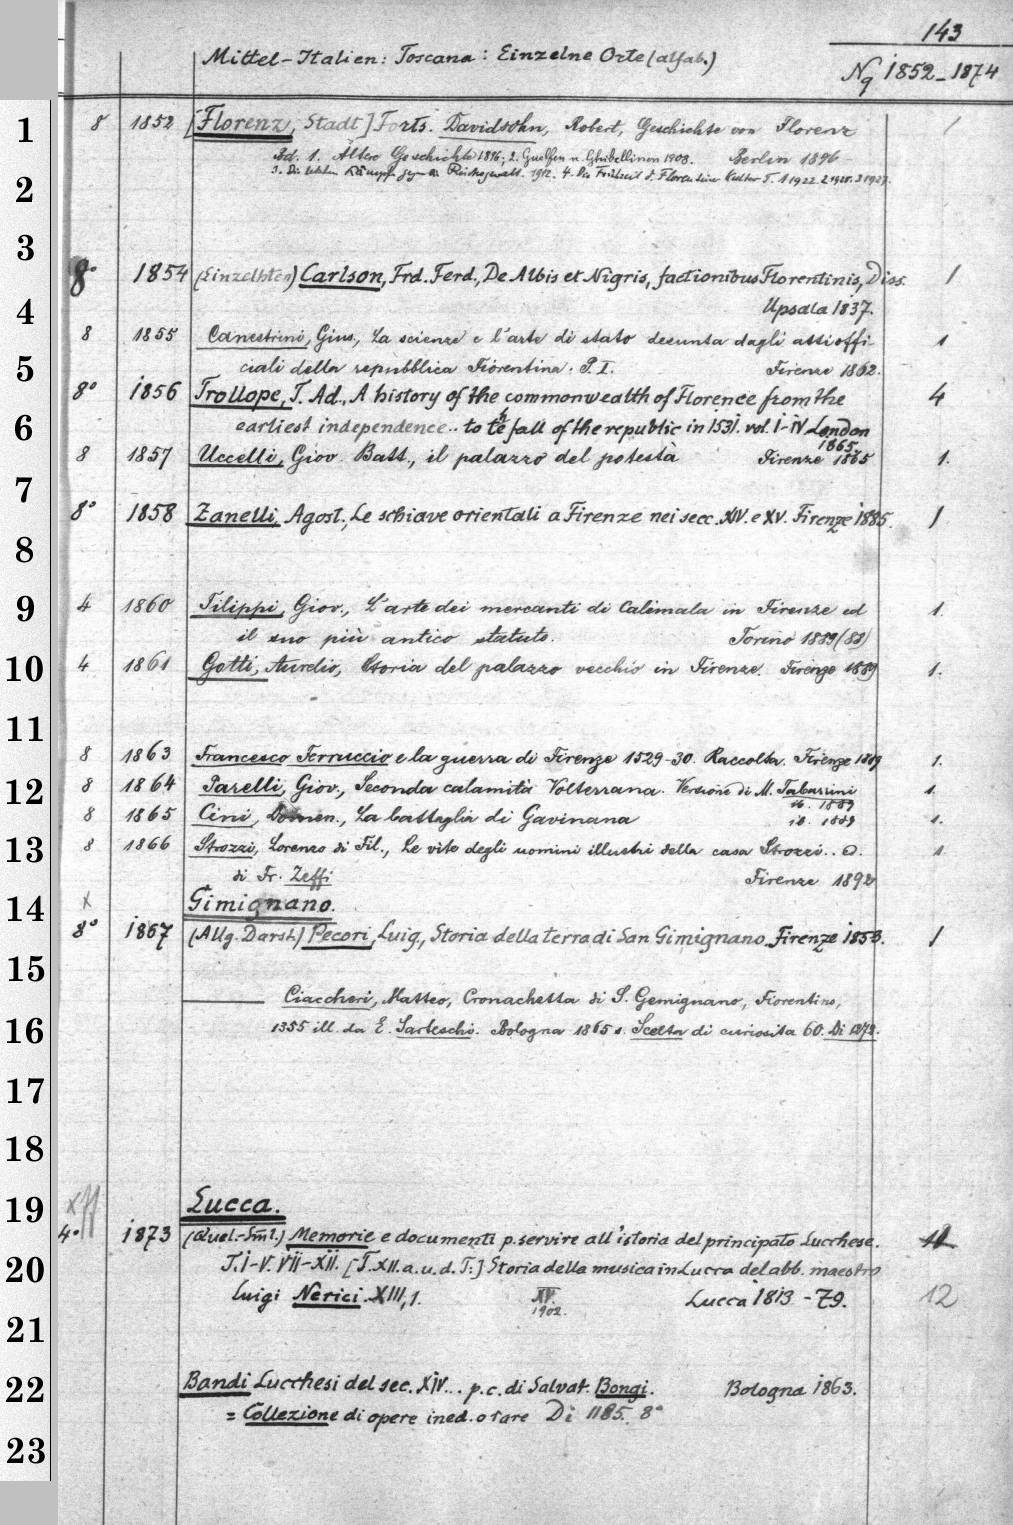 143
Mittel-Italien: Toscana: Einzelne Orte (alfab.)
Nq 1852-1874
1
8 1852 [Florenz, Stadt] Forts. Davidsohn, Robert, Geschichte von Florenz 1
Bd. 1. Altere Geschichte 1896; 2. Guelfen u. Ghibellinen 1908. Berlin 1896-
2
3. Die letzten Kämpfe gegen die Reichsgewalt. 1912. 4. Die Frühzeit d. Florentiner Kultur T. 1 1922. 2 1925. 3 1927.
3
8° 1854 (Einzelhten) Carlson, Frd. Ferd., De Albis et Nigris, factionibus Florentinis, Diss. 1
4
Upsala 1837.
8 1855 Canestrini, Gius., La scienza e l'arte di stato desunta dagli atti offi- 1
5
ciali della repubblica Fiorentina. P. I. Firenze 1862.
8° 1856 Trollope, T. Ad., A history of the commonwealth of Florence from the 4
6
earliest independence.. to the fall of the republic in 1531. vol. I-IV London
1865.
8 1857 Uccelli, Giov. Batt., il palazzo del potestà Firenze 1865 1.
7
8° 1858 Zanelli, Agost., Le schiave orientali a Firenze nei secc. XIV. e XV. Firenze 1885. 1
8
9
4 1860 Filippi, Giov., L'arte dei mercanti di Calimala in Firenze ed 1.
il suo più antico statuto. Torino 1889 (88)
10
4 1861 Gotti, Aurelio, Storia del palazzo vecchio in Firenze. Firenze 1889 1.
11
8 1863 Francesco Ferruccio e la guerra di Firenze 1529-30. Raccolta. Firenze 1889 1.
12
8 1864 Parelli, Giov., Seconda calamità Volterrana. Versione di M. Tabarrini 1.
ib. 1889
8 1865 Cini, Domen., La battaglia di Gavinana ib. 1889 1.
13
8 1866 Strozzi, Lorenzo di Fil., Le vite degli uomini illustri della casa Strozzi.. 1
di Fr. Zeffi Firenze 1892
14
x
Gimignano.
8° 1867 (Allg. Darst.) Pecori, Luig., Storia della terra di San Gimignano. Firenze 1853. 1
15
Ciaccheri, Matteo, Cronachetta di S. Gemignano, Fiorentino,
16
1355 ill. da E. Sarteschi. Bologna 1865 s. Scelta di curiosita 60. Di 1272.
17
18
19
Lucca.
4° 1873 (Quel.-Sml.) Memorie e documenti p. servire all'istoria del principato Lucchese. 11
20
T. I-V. VII-XII. [T. XII. a. u. d. T:] Storia della musica in Lucca del abb. maestro
Luigi Nerici. XIII, 1. XV. Lucca 1813 - 79. 12
1902.
21
22
Bandi Lucchesi del sec. XIV... p. c. di Salvat. Bongi. Bologna 1863.
= Collezione di opere ined. o rare Di 1185. 8°
23